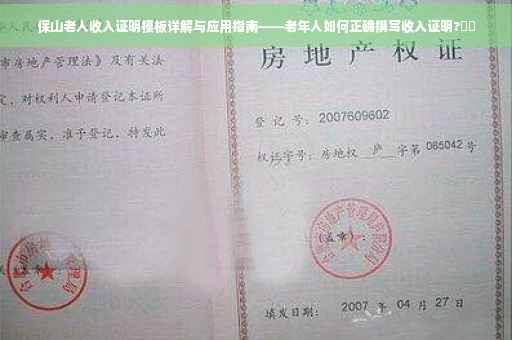 保山老人收入证明模板详解与应用指南——老年人如何正确撰写收入证明?
人民
市房地产管理法》及有关法
定，对权利人申请登记本证所
审查属实，准予登记，特发此
房地产权证
登记号：2007609602
权证字号：房地权 庐 字第 085042 号
（盖章）：
填发日期： 2007 年 04 月 27 日